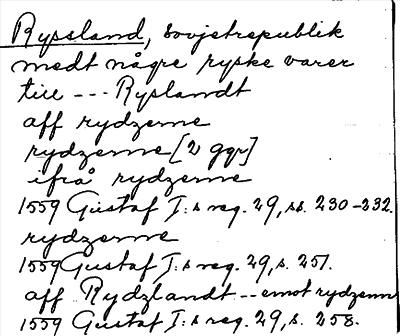 Ryssland, Sovjetrepublik
medt någre ryske varer
till --- Ryslandt
aff rydzerne
rydzerne [2 ggr]
ifrå rydzerne
1559 Gustaf I:s reg. 29, ss. 230-232.
rydzerne
1559 Gustaf I:s reg. 29, s. 251.
aff Rydzlandt -- emot rydzerne
1559 Gustaf I:s reg. 29, s. 258.